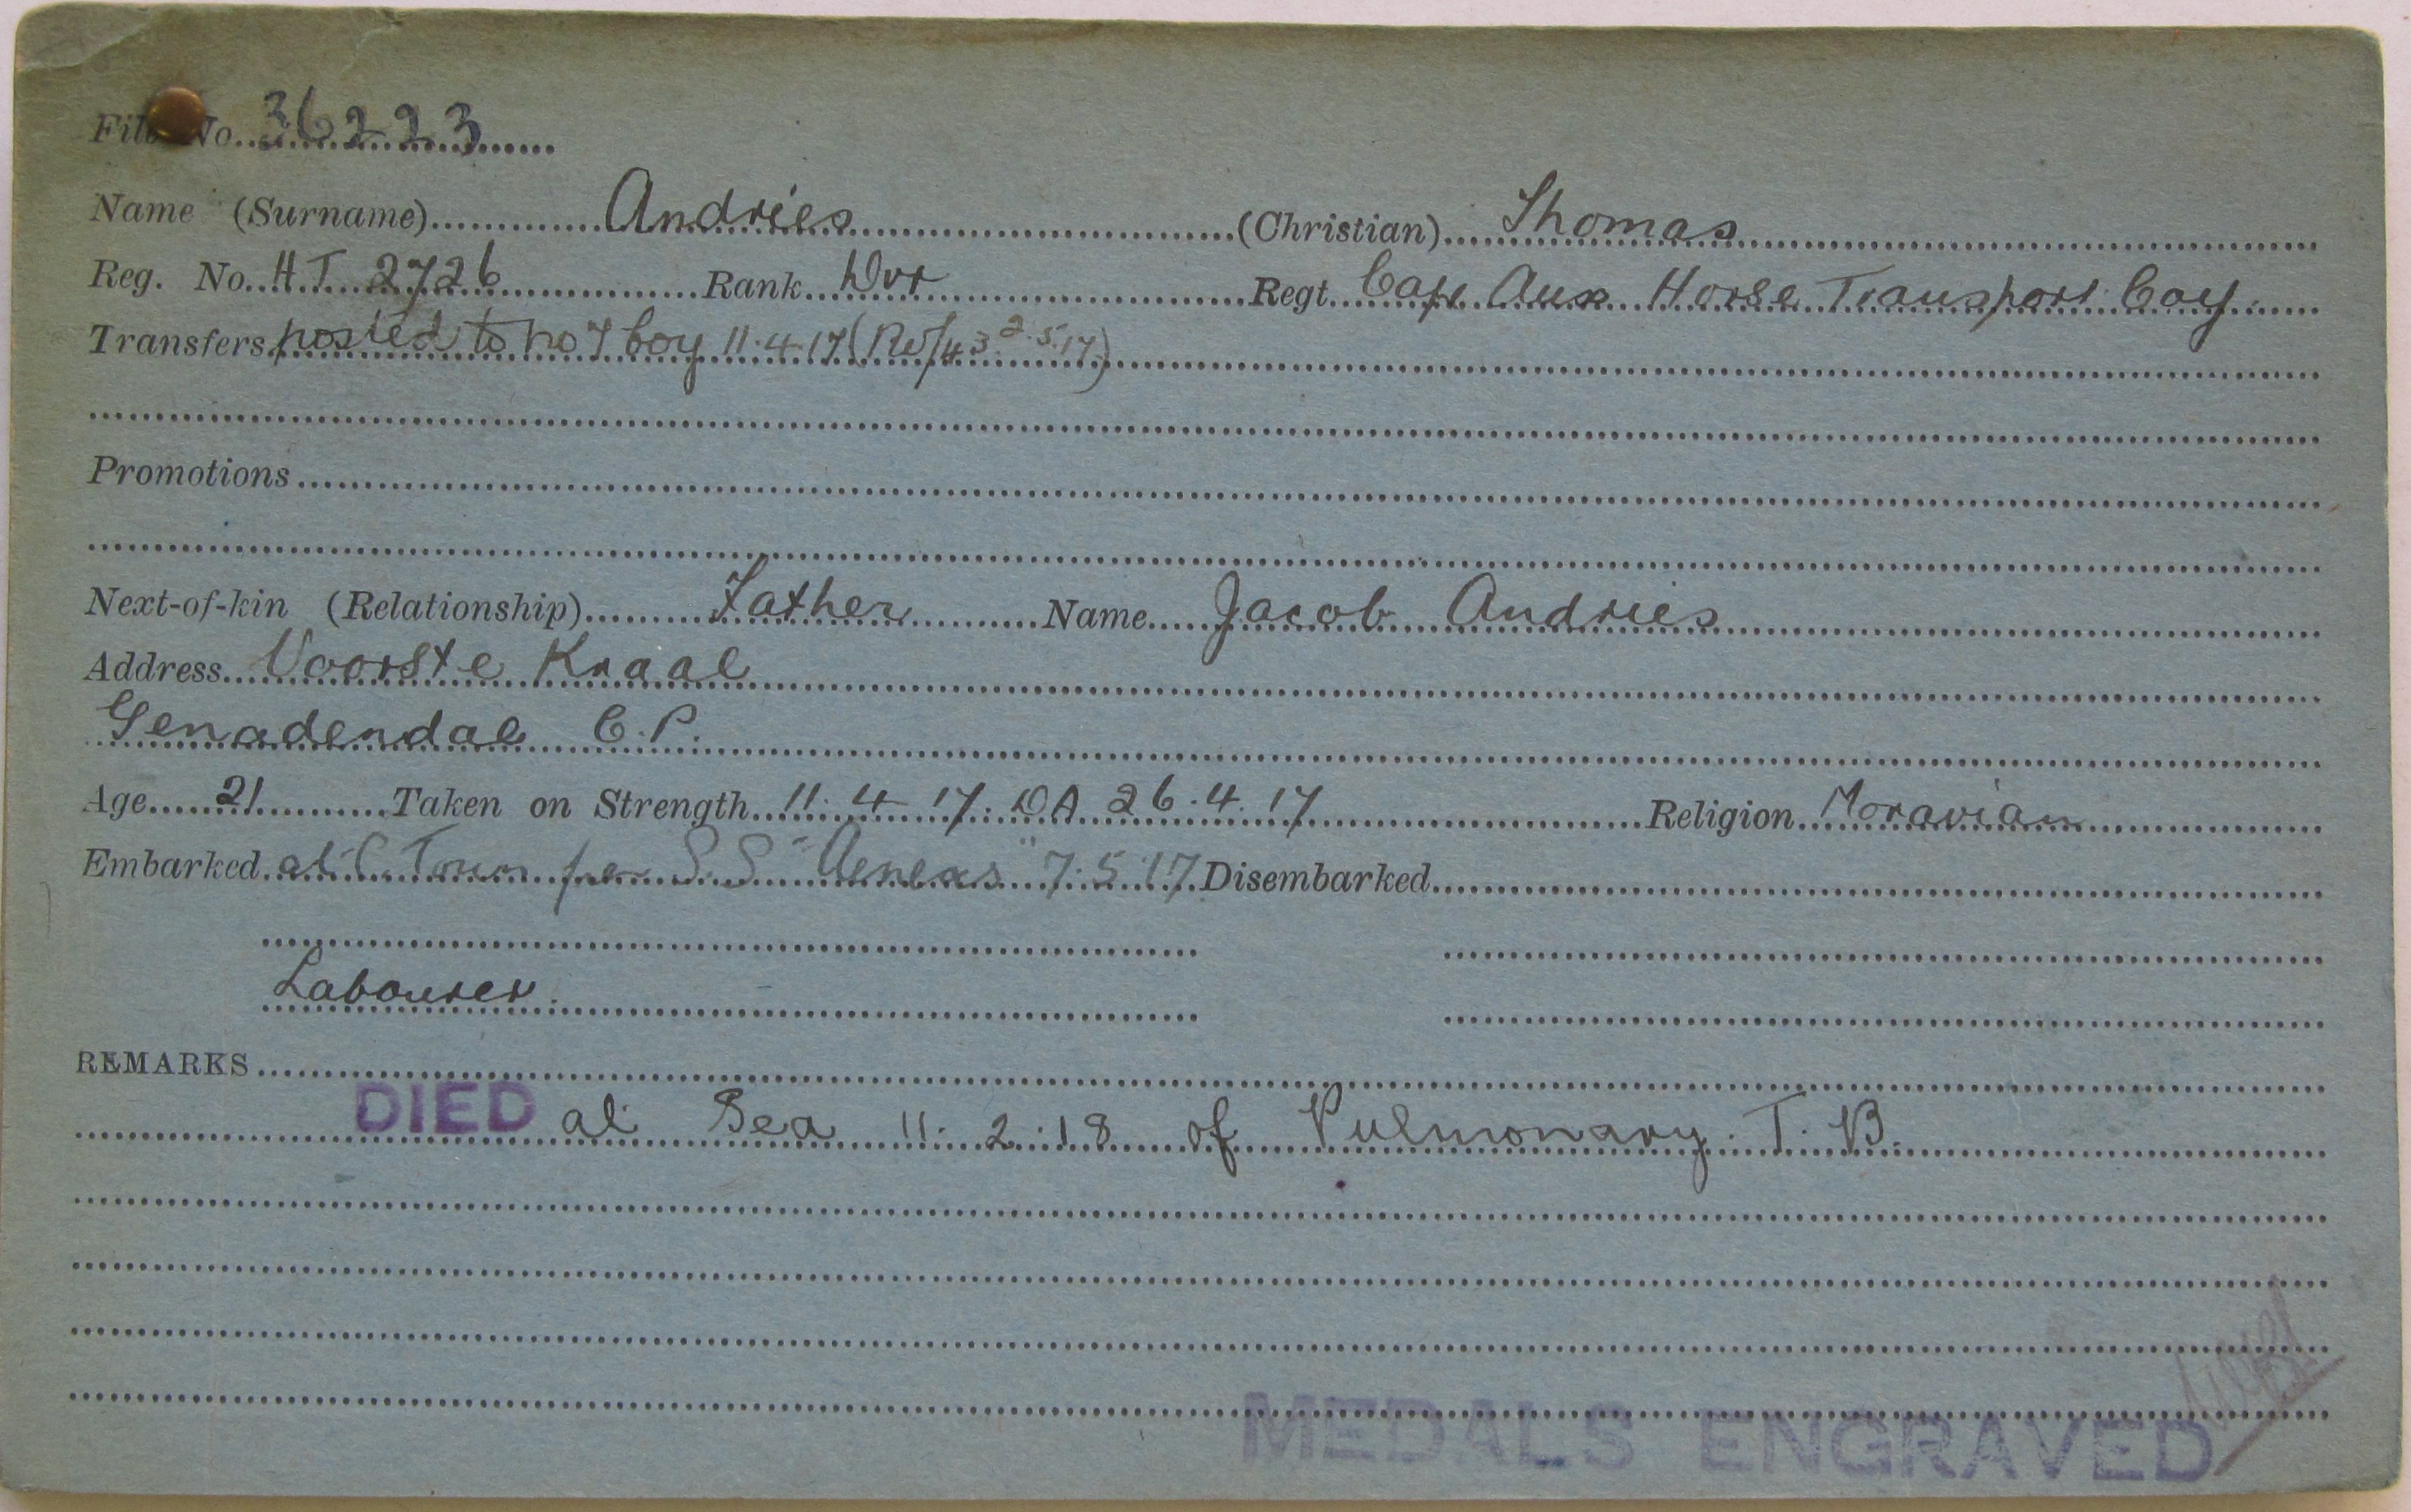 File No. 36223
Name (Surname) Andries (Christian) Thomas
Reg. No. H.T. 2726 Rank Dvr Regt. Cape Aux Horse Transport Coy.
Transfers posted to no 7 Coy 11.4.17 (Ro/43 2.5.17)
Promotions
Next-of-kin (Relationship) Father Name Jacob Andries
Address Voorste Kraal
Genadendal C.P.
Age 21 Taken on Strength 11.4.17. DA 26.4.17 Religion Moravian
Embarked at C. Town per S.S "Aeneas" 7.5.17 Disembarked
Labourer.
REMARKS
DIED at Sea 11.2.18 of Pulmonary. T.B.
MEDALS ENGRAVED